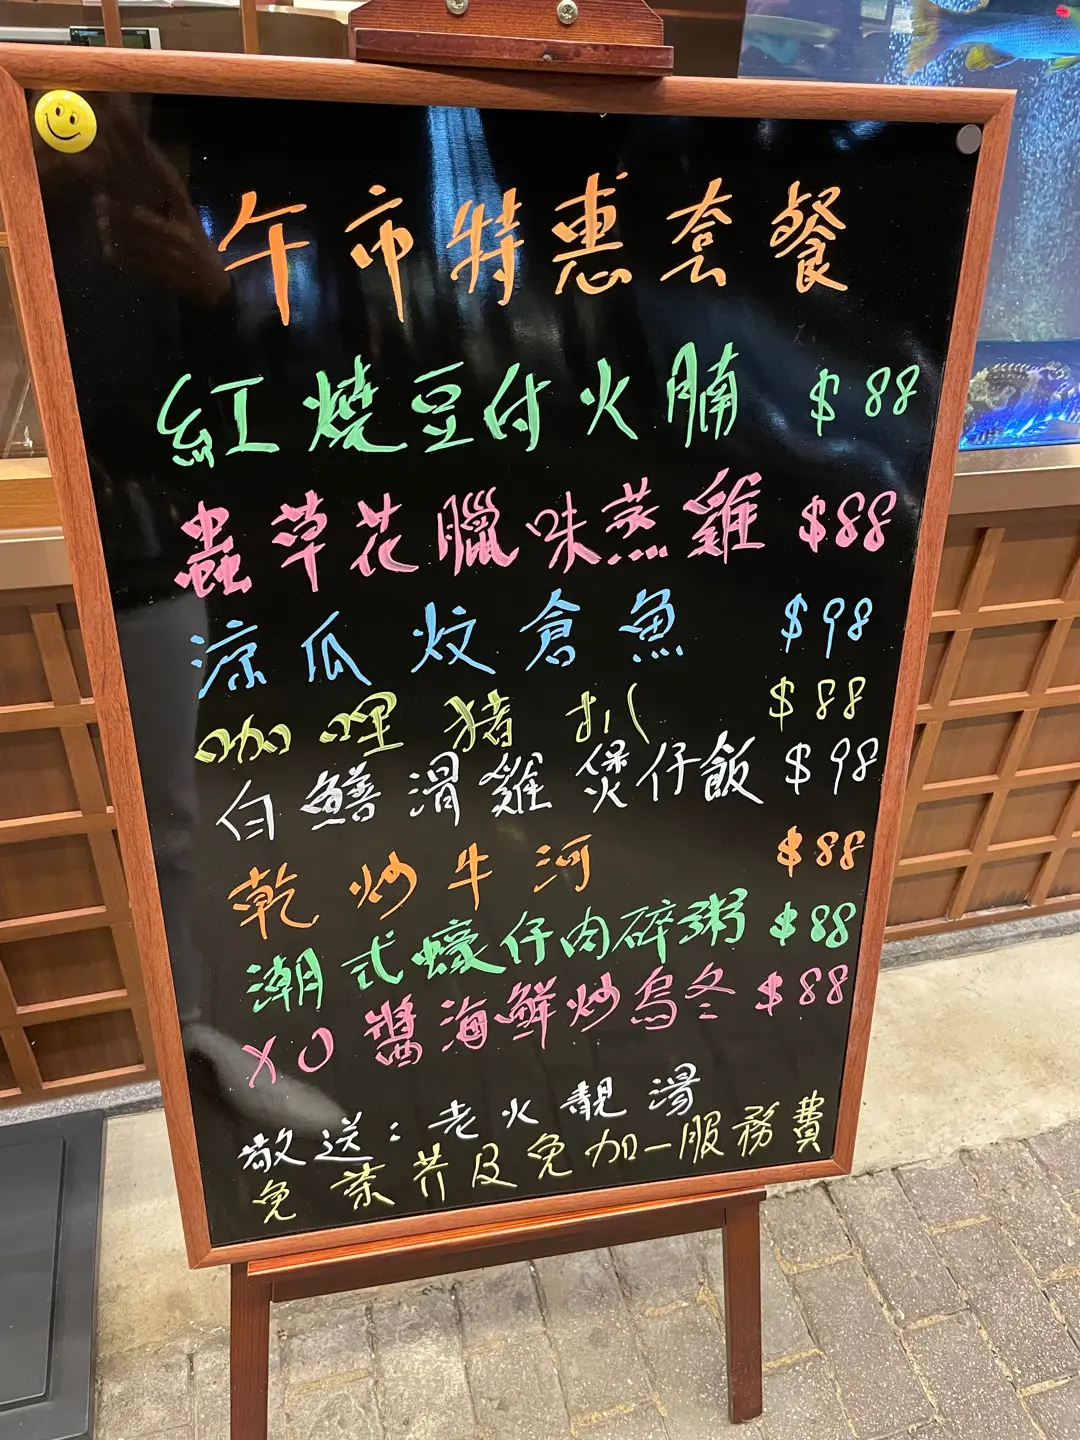 午市特惠套餐
紅燒豆付火腩 $88
蟲草花臘味蒸雞 $88
涼瓜炆倉魚 $98
咖哩豬扒 $88
白鱔滑雞煲仔飯 $98
乾炒牛河 $88
潮式蠔仔肉碎粥 $88
XO醬海鮮炒烏冬 $88
敬送：老火靚湯
免茶芥及免加一服務費